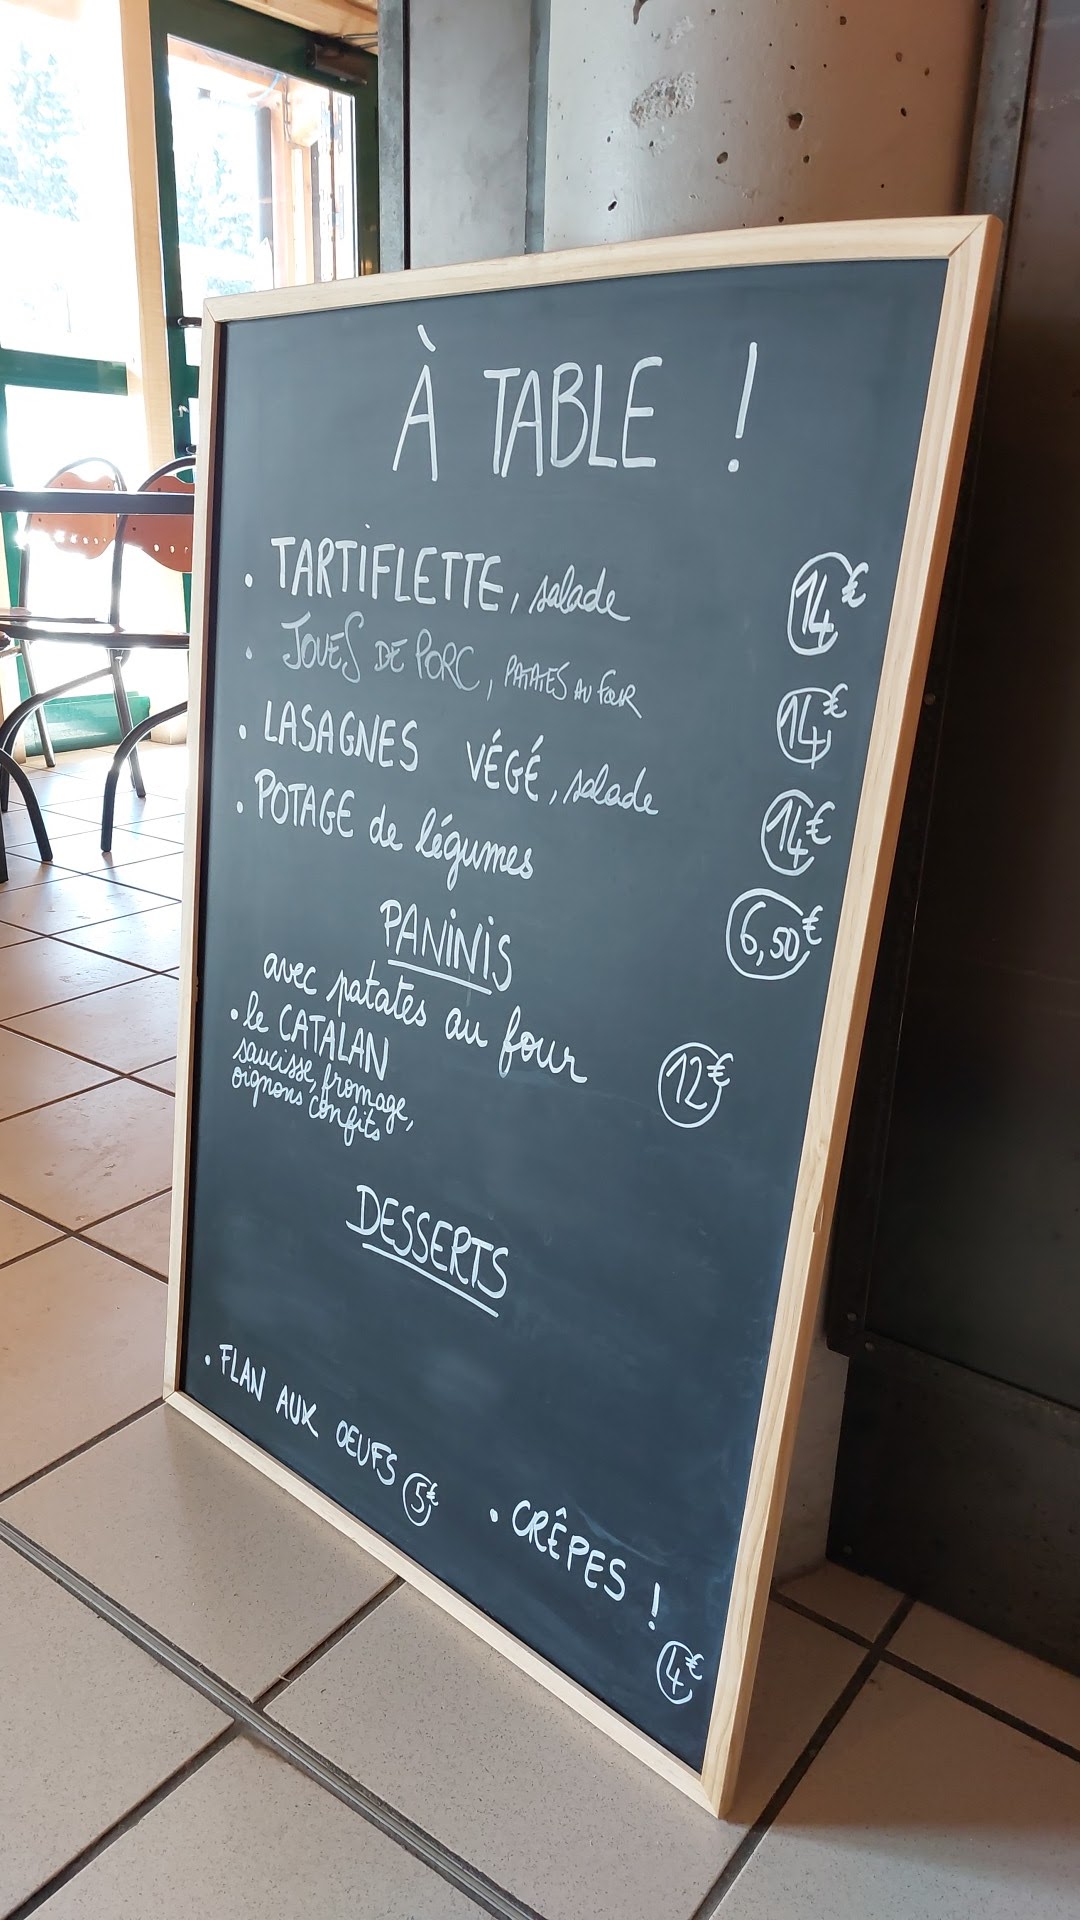 À TABLE !
. TARTIFLETTE, salade 14€
. JOUES DE PORC, PATATES AU FOUR 14€
. LASAGNES VÉGÉ, salade 14€
. POTAGE de légumes 6,50€
PANINIS
avec patates au four 12€
. le CATALAN
saucisse, fromage,
oignons confits
DESSERTS
. FLAN AUX OEUFS 5€
. CRÊPES !
4€